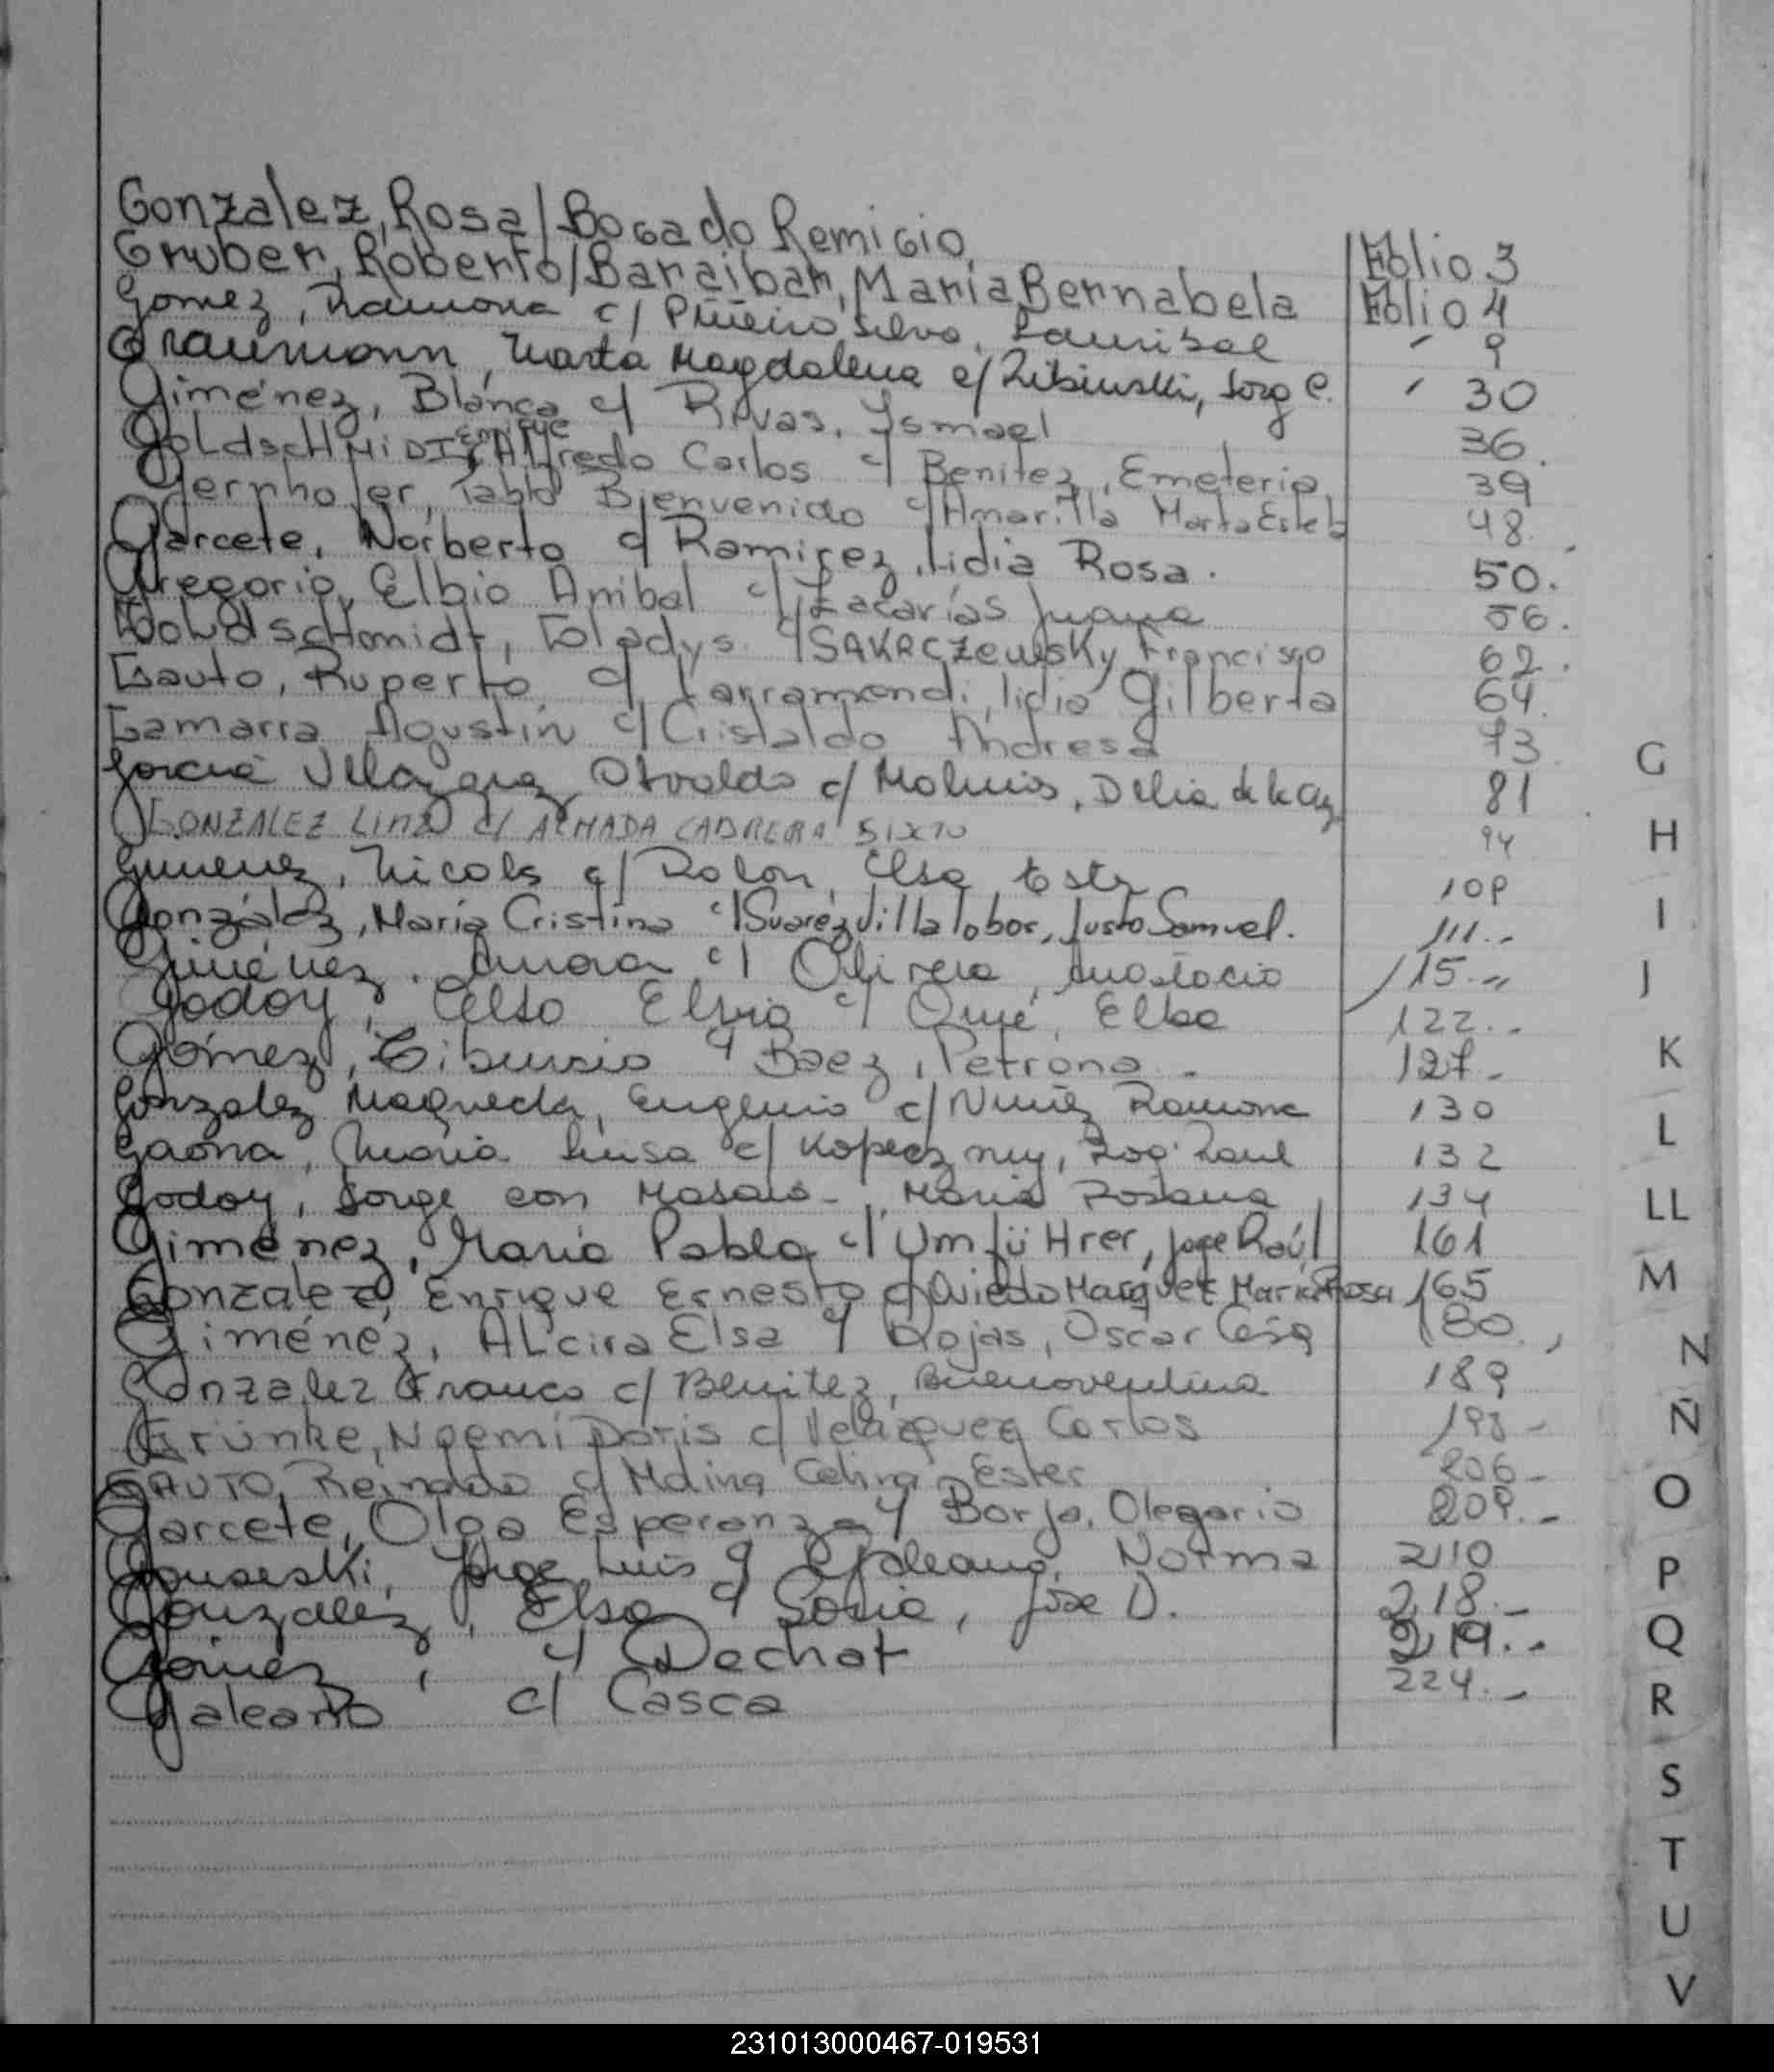 Gonzalez, Rosa/Bogado Remigio, Folio 3
Gruber, Roberto/Baraibar, Maria Bernabela Folio 4
Gomez, Ramona c/ Piñeiro Silva, 9
Graumann, Marta Magdalena c/ Zibinski, Jorg e. 30
Giménez, Blanca c/ Rivas, Ismael 36.
GoLdscHMiDT, Enrique Alfredo Carlos c/ Benitez, Emeteria 39
Gernhofer, Pablo Bienvenido c/ Amarilla Marta Estela 48.
Garcete, Norberto c/ Ramirez, Lidia Rosa. 50.
Gregorio, Elbio Anibal c/ Zacarías Juana 56.
GoLdscHmidt, Gladys c/ SAKACZewsKy Francisco 62.
Gauto, Ruperto c/ Larramendi, lidia Gilberta 64.
Gamarra Agustín c/ Cristaldo Andresa 73
Garcia Villa Osvaldo c/ Molinas, Delia de la Cruz 81
GONZALEZ LINO c/ ALMADA CABRERA SIXTO 94
Gimenez, Nicolas c/ Rolon, Elsa Ester 109
González, María Cristina c/ Suarez Villalobos, Justo Samuel. 111.-
Giménez. Aurora c/ Olivera, Anastacio 115.-
Godoy, Celso Elvio c/ Elba 122.-
Gómez, Tibursio c/ Baez, Petrona.- 127.-
Gonzalez Maqueda, Eugenio c/ Nuñez Ramona 130
Gaona, Maria Luisa c/ Kopecz ny, Raul 132
Godoy, Jorge con Masaló, Maria Rosana 134
Giménez, María Pabla c/ Umfü Hrer, Jorge Raúl 161
Gonzalez, Enrique Ernesto c/ Oviedo Marquez Maria Rosa 165
Giménez, ALcira Elsa c/ Rojas, Oscar Cesar 180.,
Gonzalez Franco c/ Benitez, Buenaventura 189
Grünke, Noemi Doris c/ Velázquez Carlos 198-
GAUTO, Reinaldo c/ Molina Celina Ester 206-
Garcete, Olga Esperanza c/ Borja, Olegario 209.-
Jorge Luis c/ Galeano, Norma 210
Gonzalez, Elsa c/ Sosa, José D. 218.-
Gómez, c/ Dechat 219.-
Galeano c/ Casca 224.-
G
H
I
J
K
L
LL
M
N
Ñ
O
P
Q
R
S
T
U
V
231013000467-019531